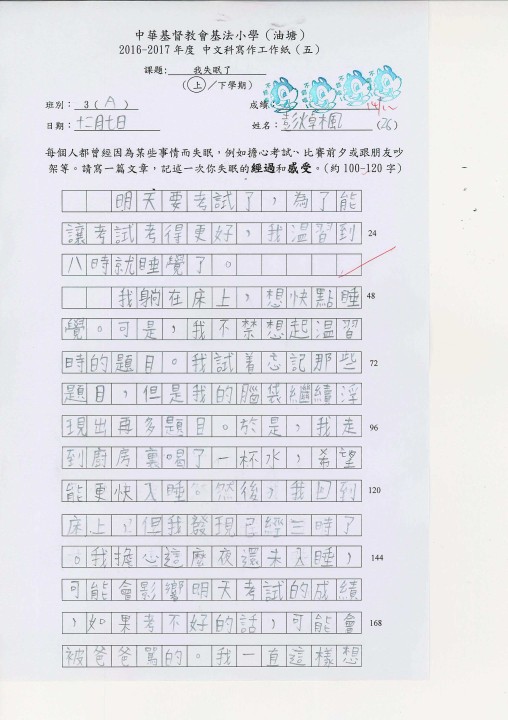 中華基督教會基法小學（油塘）
2016-2017年度 中文科寫作工作紙（五）
課題: 我失眠了
（上/下學期）
班別: 3(A) 成績:
日期: 十二月七日 姓名: (26)
每個人都曾經因為某些事情而失眠，例如擔心考試、比賽前夕或跟朋友吵
架等。請寫一篇文章，記述一次你失眠的經過和感受。(約100-120字)
明天要考試了，為了能
讓考試考得更好，我溫習到 24
八時就睡覺了。
我躺在床上，想快點睡 48
覺。可是，我不禁想起溫習
時的題目。我試着忘記那些 72
題目，但是我的腦袋繼續浮
現出再多題目。於是，我走 96
到廚房裏喝了一杯水，希望
能更快入睡。然後，我回到 120
床上，但我發現已經三時了
。我擔心這麼夜還未入睡， 144
可能會影響明天考試的成績
，如果考不好的話，可能會 168
被爸爸罵的。我一直這樣想